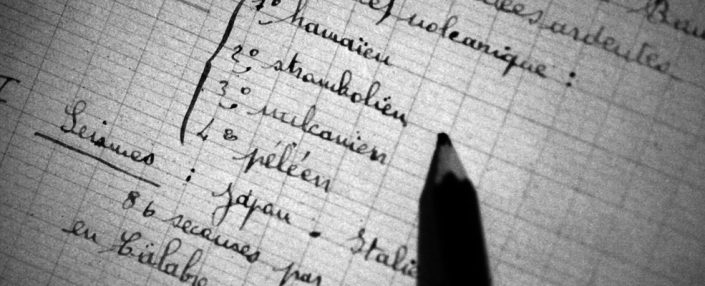 volcanique :
ées ardentes
1° hawaïen
2° strombolien
3° vulcanien
4° péléen
I
Séismes : Japan . Itali
86 secousses par
en Calabre